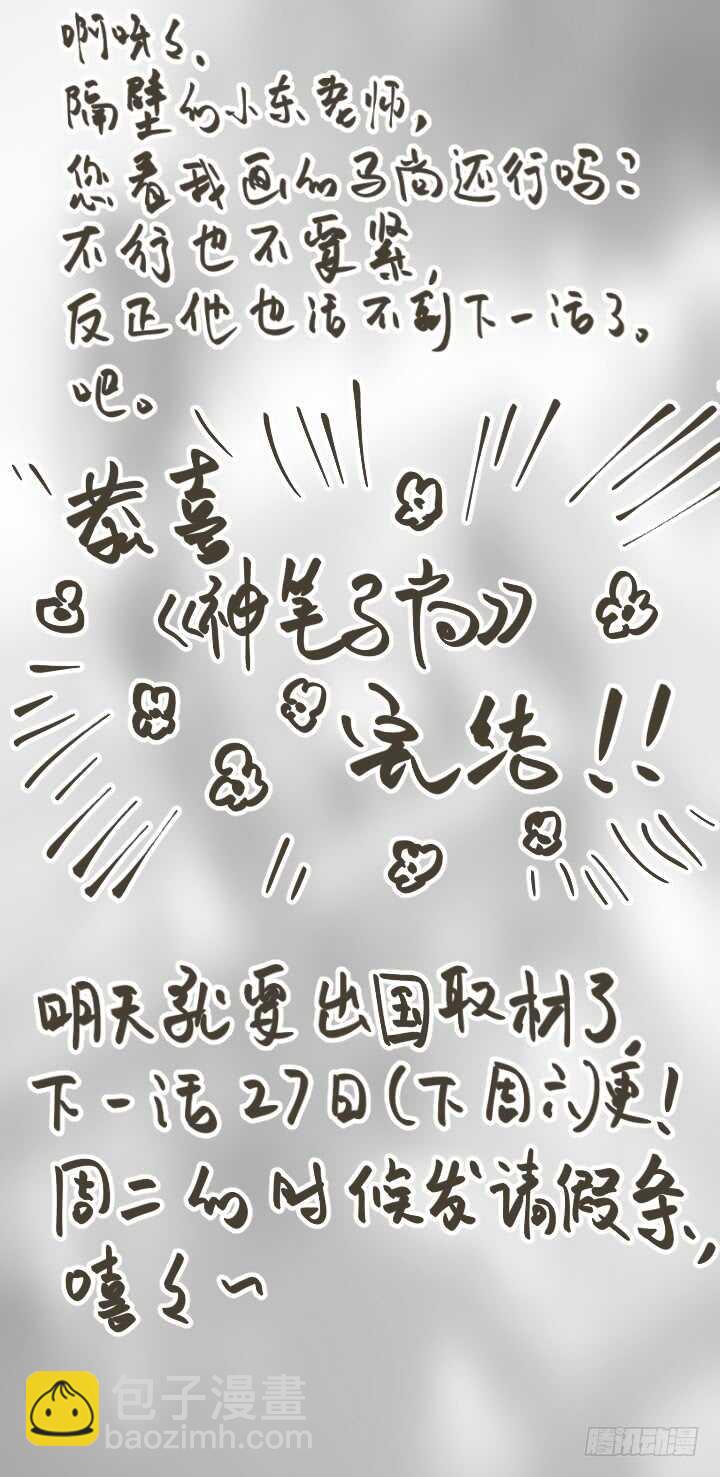 啊呀々、
隔壁的小东老师,
您看我画的马尚还行吗?
不行也不要紧,
反正他也活不到下一话了。
吧。
恭喜
《神笔马尚》
完结!!
明天就要出国取材了,
下一话27日(下周六)更!
周二的时候发请假条,
嘻々~
包子漫畫
baozimh.com
腾讯动漫